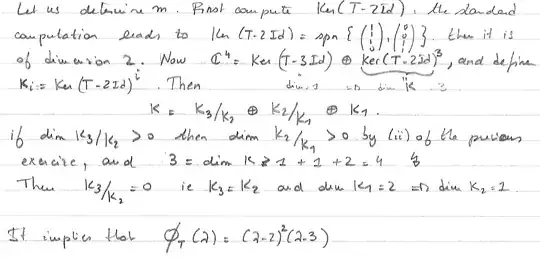 Let us determine m. First compute Ker(T-2Id), the standard
computation leads to Ker(T-2Id) = spn { (1 1 1 0), (1 0 0 1) }. then it is
of dimension 2. Now ℂ⁴ = Ker(T-3Id) ⊕ Ker(T-2Id)³, and define
Kᵢ = Ker(T-2Id)ⁱ. Then dim 1 ⇒ dim K 3
K = K₃/K₂ ⊕ K₂/K₁ ⊕ K₁.
if dim K₃/K₂ > 0 then dim K₂/K₁ > 0 by (ii) of the previous
exercise, and 3 = dim K ≥ 1 + 1 + 2 = 4 ↯
Then K₃/K₂ = 0 ie K₃ = K₂ and dim K₁ = 2 ⇒ dim K₂ = 1.
It implies that ϕ_T(λ) = (λ-2)²(λ-3)